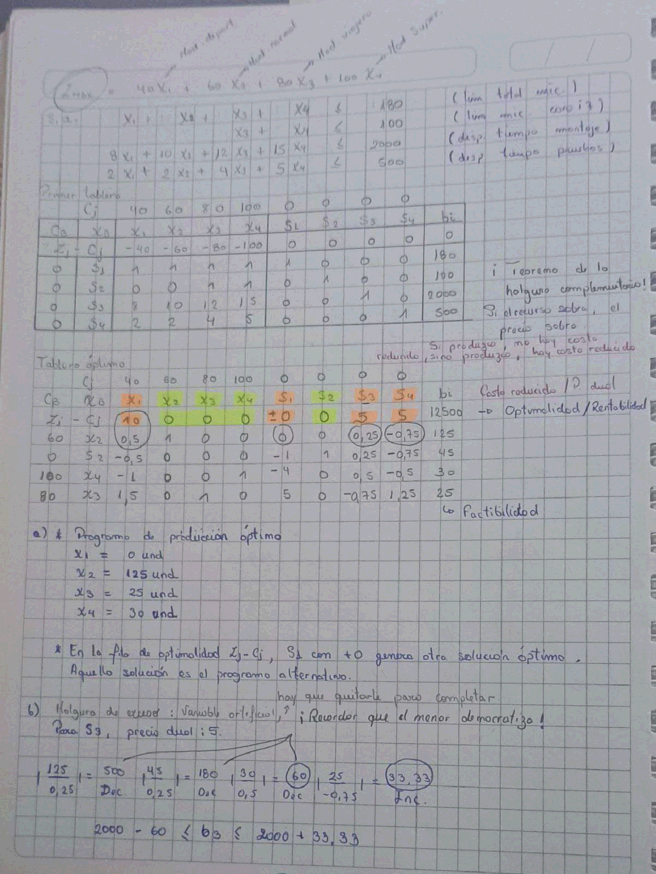 Mod deport. Mod normal Mod viajero Mod Super.
Zmax = 40x₁ + 60 x₂ + 80x₃ + 100 x₄
s.a. x₁ + x₂ + x₃ + x₄ ≤ 180 (lim total mic.)
x₃ + x₄ ≤ 100
8x₁ + 10x₂ + 12x₃ + 15x₄ ≤ 2000 (disp tiempo montaje)
2x₁ + 2x₂ + 4x₃ + 5x₄ ≤ 500 (disp tiempo pruebas)
Primer tablero
Cj 40 60 80 100 0 0 0 0
CB XB x₁ x₂ x₃ x₄ S₁ S₂ S₃ S₄ bi
Zj - Cj -40 -60 -80 -100 0 0 0 0 0
0 S₁ 1 1 1 1 1 0 0 0 180
0 S₂ 0 0 1 1 0 1 0 0 100
0 S₃ 8 10 12 15 0 0 1 0 2000
0 S₄ 2 2 4 5 0 0 0 1 500
¡Teorema de la
holgura complementaria!
Si el recurso sobra, el
precio sobra
Si produzco, no hay costo
reducido, si no produzco, hay costo reducido
Tablero óptimo
Cj 40 60 80 100 0 0 0 0
CB XB x₁ x₂ x₃ x₄ S₁ S₂ S₃ S₄ bi Costo reducido / P dual
Zj - Cj 10 0 0 0 ±0 0 5 5 12500 → Optimalidad/Rentabilidad
60 x₂ 0,5 1 0 0 0 0 0,25 -0,75 125
0 S₂ -0,5 0 0 0 -1 1 0,25 -0,75 45
100 x₄ -1 0 0 1 -4 0 0,5 -0,5 30
80 x₃ 1,5 0 1 0 5 0 -0,75 1,25 25
↳ Factibilidad
a) * Programa de producción óptimo
x₁ = 0 und
x₂ = 125 und
x₃ = 25 und
x₄ = 30 und
* En la fila de optimalidad Zj-Cj, S₁ con +0 genera otra solución óptima.
Aquella solución es el programa alternativo.
hay que quitarle para completar
b) Holgura de exceso: Variable artificial, ? ¡Recordar que el menor democratiza!
Para S₃, precio dual: 5.
|125/0,25| = 500 Dec |45/0,25| = 180 Dec |30/0,5| = 60 Dec |25/-0,75| = 33,33 Inc.
2000 - 60 ≤ b₃ ≤ 2000 + 33,33